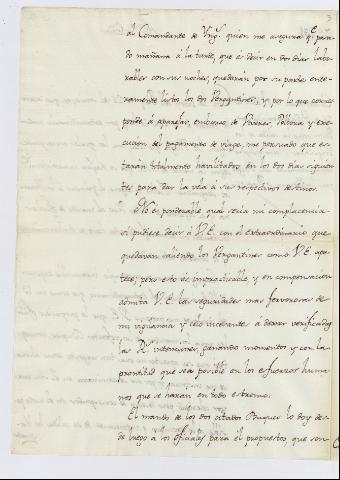 al Comandante de Yng.s quien me asegura q.e pasa-
do mañana á la tarde, que és decir en dos dias labo-
rables con sus noches, quedarán por su parte ente-
ramente listos los dos Bergantines, y por lo que corres-
ponde á aparejar, embarco de Viveres, Polvora y exe-
cucion del pagamento de viage, me persuado que es-
tarán totalmente havilitados en los dos dias siguien-
tes para dar la vela á sus respectivos destinos.
No és ponderable qual seria mi complacencia
si pudiese decir á V.E. con el extraordinario que
quedavan saliendo los Bergantines como V.E. ape-
tece; pero esto és impracticable, y en compensacion
admita V.E. las seguridades mas fervorosas de
mi vigilancia y celo incesante á dexar verificadas
las R.s intenciones, ganando momentos y con la
prontitud que sea posible en los esfuerzos huma-
nos que se harán en todo extremo.
El mando de los dos citados Buques lo doy des-
de luego á los oficiales para el propuestos que son